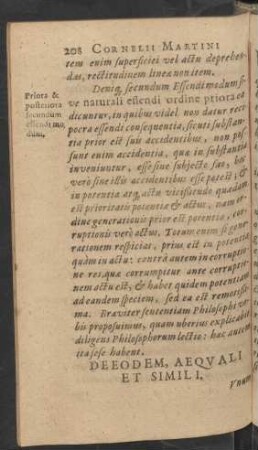 208 CORNELII MARTINI
tem enim superficiei vel actu deprehen-
das, rectitudinem lineæ non item.
Deniq, secundum Essendi modum si-
ve naturali essendi ordine priora ea
dicuntur, in quibus videl. non datur reci-
pocra essendi consequentia, sicuti substan-
tia prior est suis accidentibus, non pos-
sunt enim accidentia, quæ in substantia
inveniuntur, esse sine subjecto suo, hoc
verò sine istis accidentibus esse potest; &
in potentia atq, actu vicissitudo quædam
est prioritatis potentiæ & actus, nam or-
dine generationis prior est potentia, cor-
ruptionis verò actus. Totum enim si gene-
rationem respicias, prius est in potentia
quàm in actu: contrà autem in corruptio-
ne res, quæ corrumpitur ante corruptio-
nem actu est, & habet quidem potentiam
ad eandem speciem, sed ea est remotissi-
ma. Breviter sententiam Philosophi ver-
bis proposuimus, quam uberius explicabit
diligens Philosophorum lectio: hæc autem
ita sese habent.
DE EODEM, AEQVALI
ET SIMILI.
Vnum
Priora &
posteriora
secundum
essendi mo-
dum.